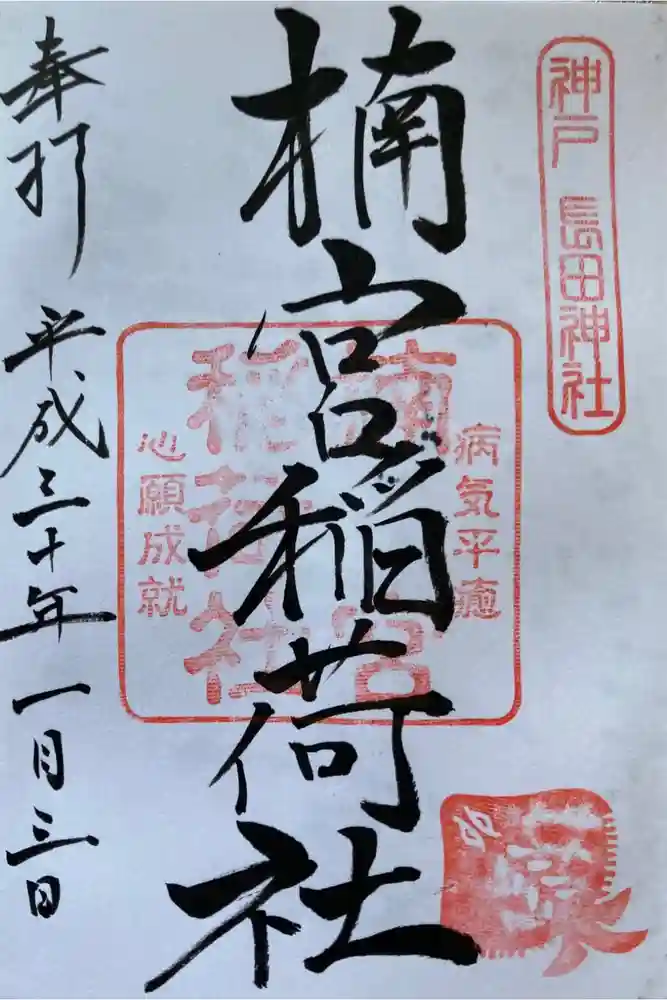 神戸 長田神社
楠宮稲荷社
病気平癒
楠宮
稲荷社
心願成就
奉拝 平成三十年一月三日